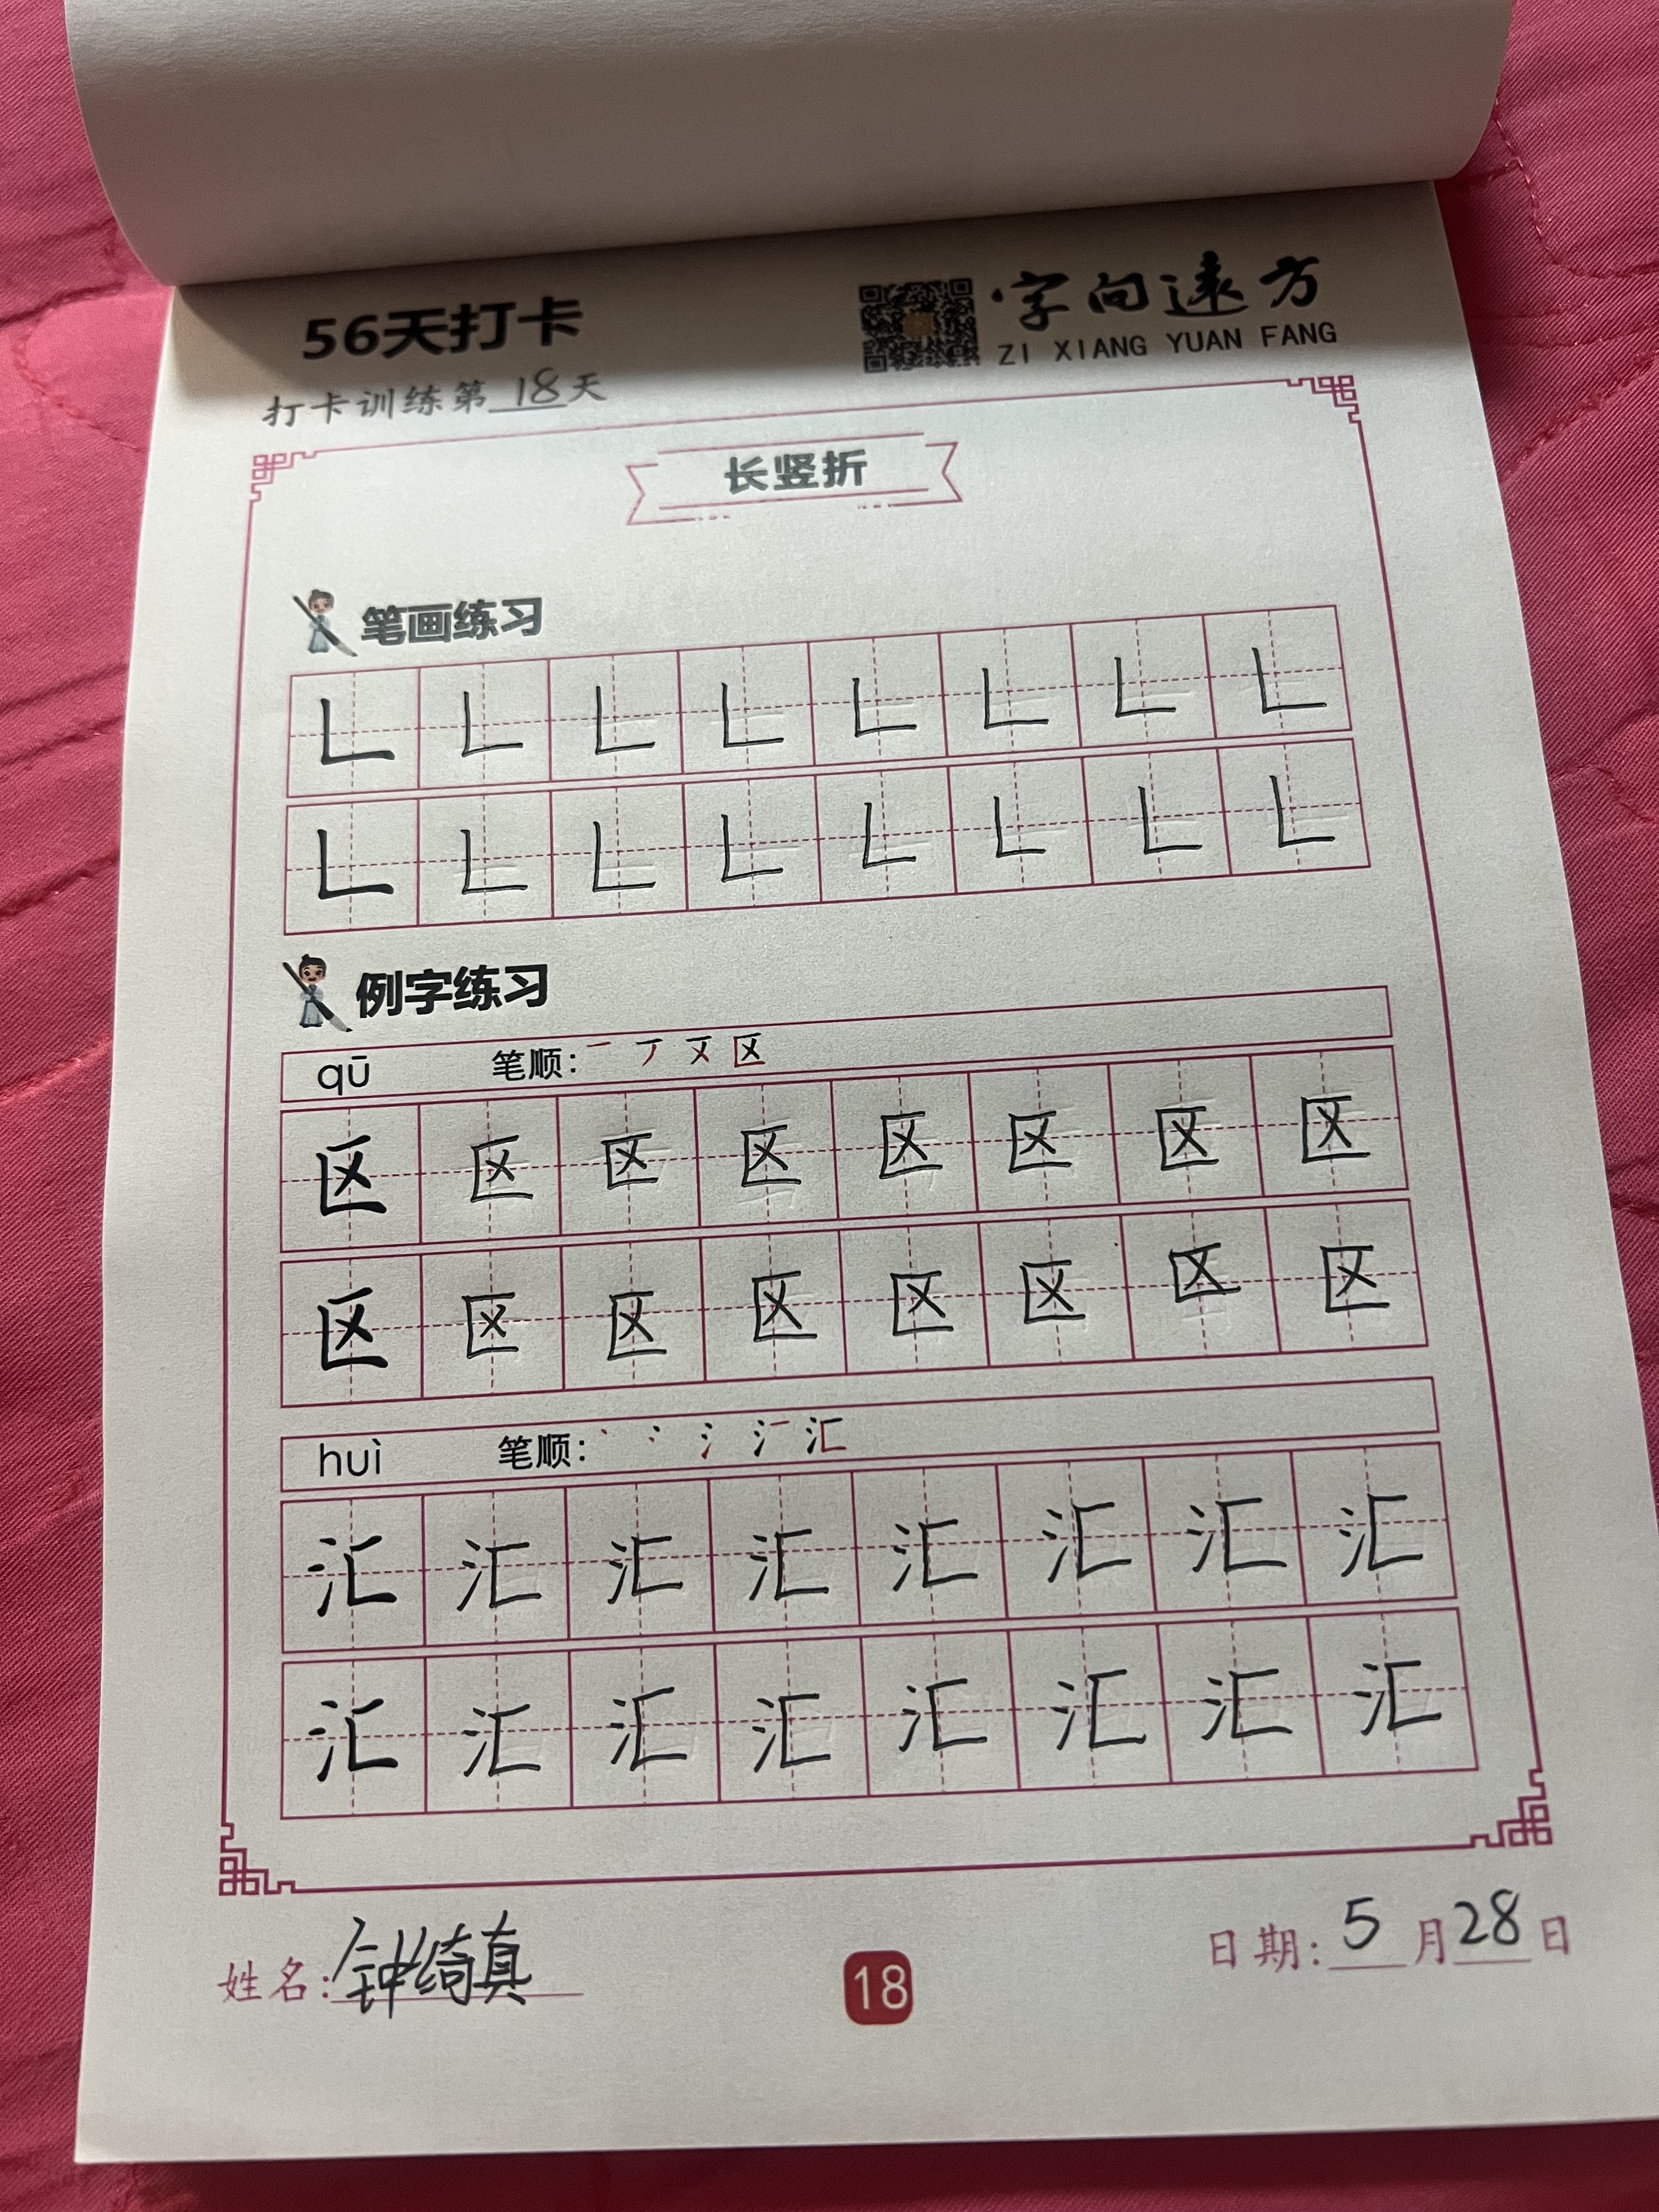 56天打卡
字向远方
ZI XIANG YUAN FANG
打卡训练第18天
长竖折
笔画练习
㇗ ㇗ ㇗ ㇗ ㇗ ㇗ ㇗ ㇗
㇗ ㇗ ㇗ ㇗ ㇗ ㇗ ㇗ ㇗
例字练习
qū 笔顺: 一 丆 区
区 区 区 区 区 区 区 区
区 区 区 区 区 区 区 区
huì 笔顺: 丶 冫 氵 汇
汇 汇 汇 汇 汇 汇 汇 汇
汇 汇 汇 汇 汇 汇 汇 汇
姓名: 钟绮真
18
日期: 5月28日